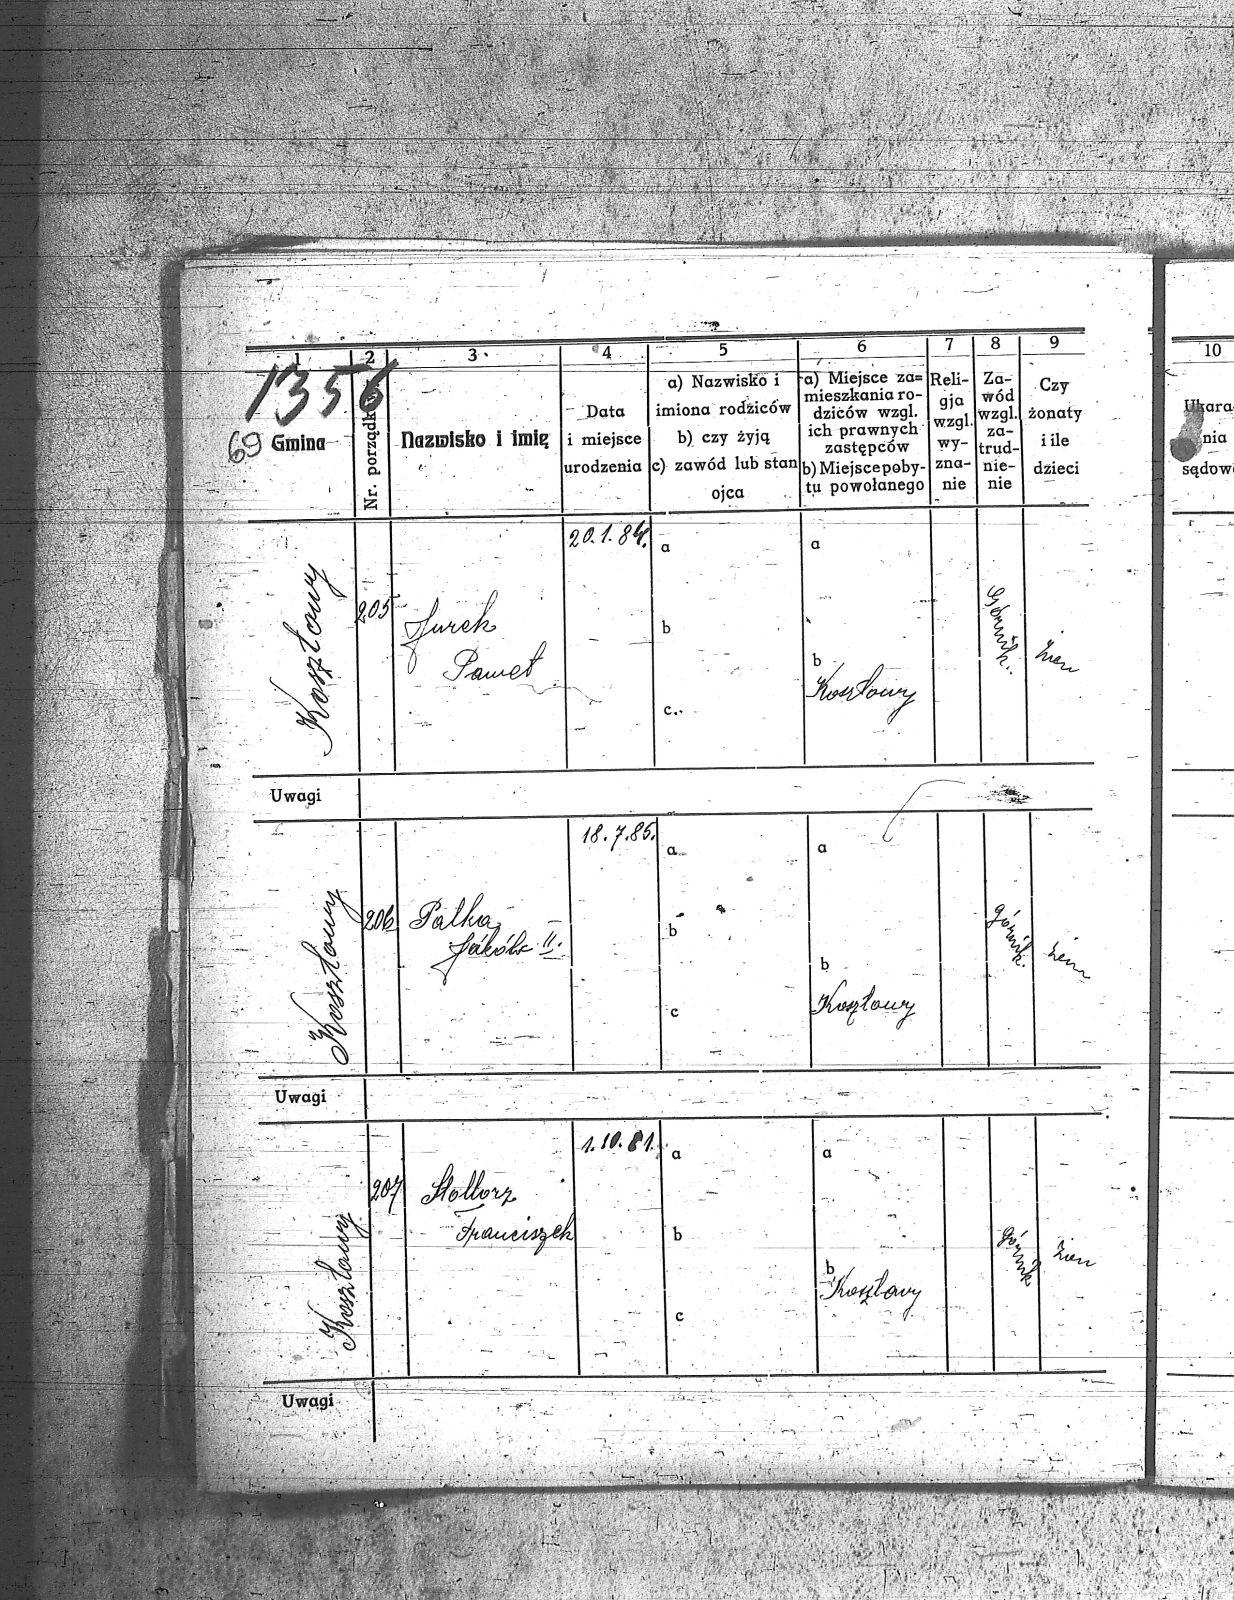 1 2 3. 4 5 6 7 8 9
1356
69
Gmina
Nr. porządk
Nazwisko i imię
Data
i miejsce
urodzenia
a) Nazwisko i
imiona rodziców
b) czy żyją
c) zawód lub stan
ojca
a) Miejsce za=
mieszkania ro-
dziców wzgl.
ich prawnych
zastępców
b) Miejsce poby-
tu powołanego
Reli-
gja
wzgl.
wy-
zna-
nie
Za-
wód
wzgl.
za-
trud-
nie-
nie
Czy
żonaty
i ile
dzieci
10
Ukara
nia
sądow
Koszłowy
205
Jurek
Paweł
20.1.84.
a
b
c.
a
b
Koszłowy
Górnik.
Uwagi
Koszłowy
206
Palka
Jakób II.
18.7.85.
a
b
c
a
b
Koszłowy
górnik.
Uwagi
Koszłowy
207
Franciszek
1.10.81.
a
b
c
a
b
Koszławy
górnik
Uwagi